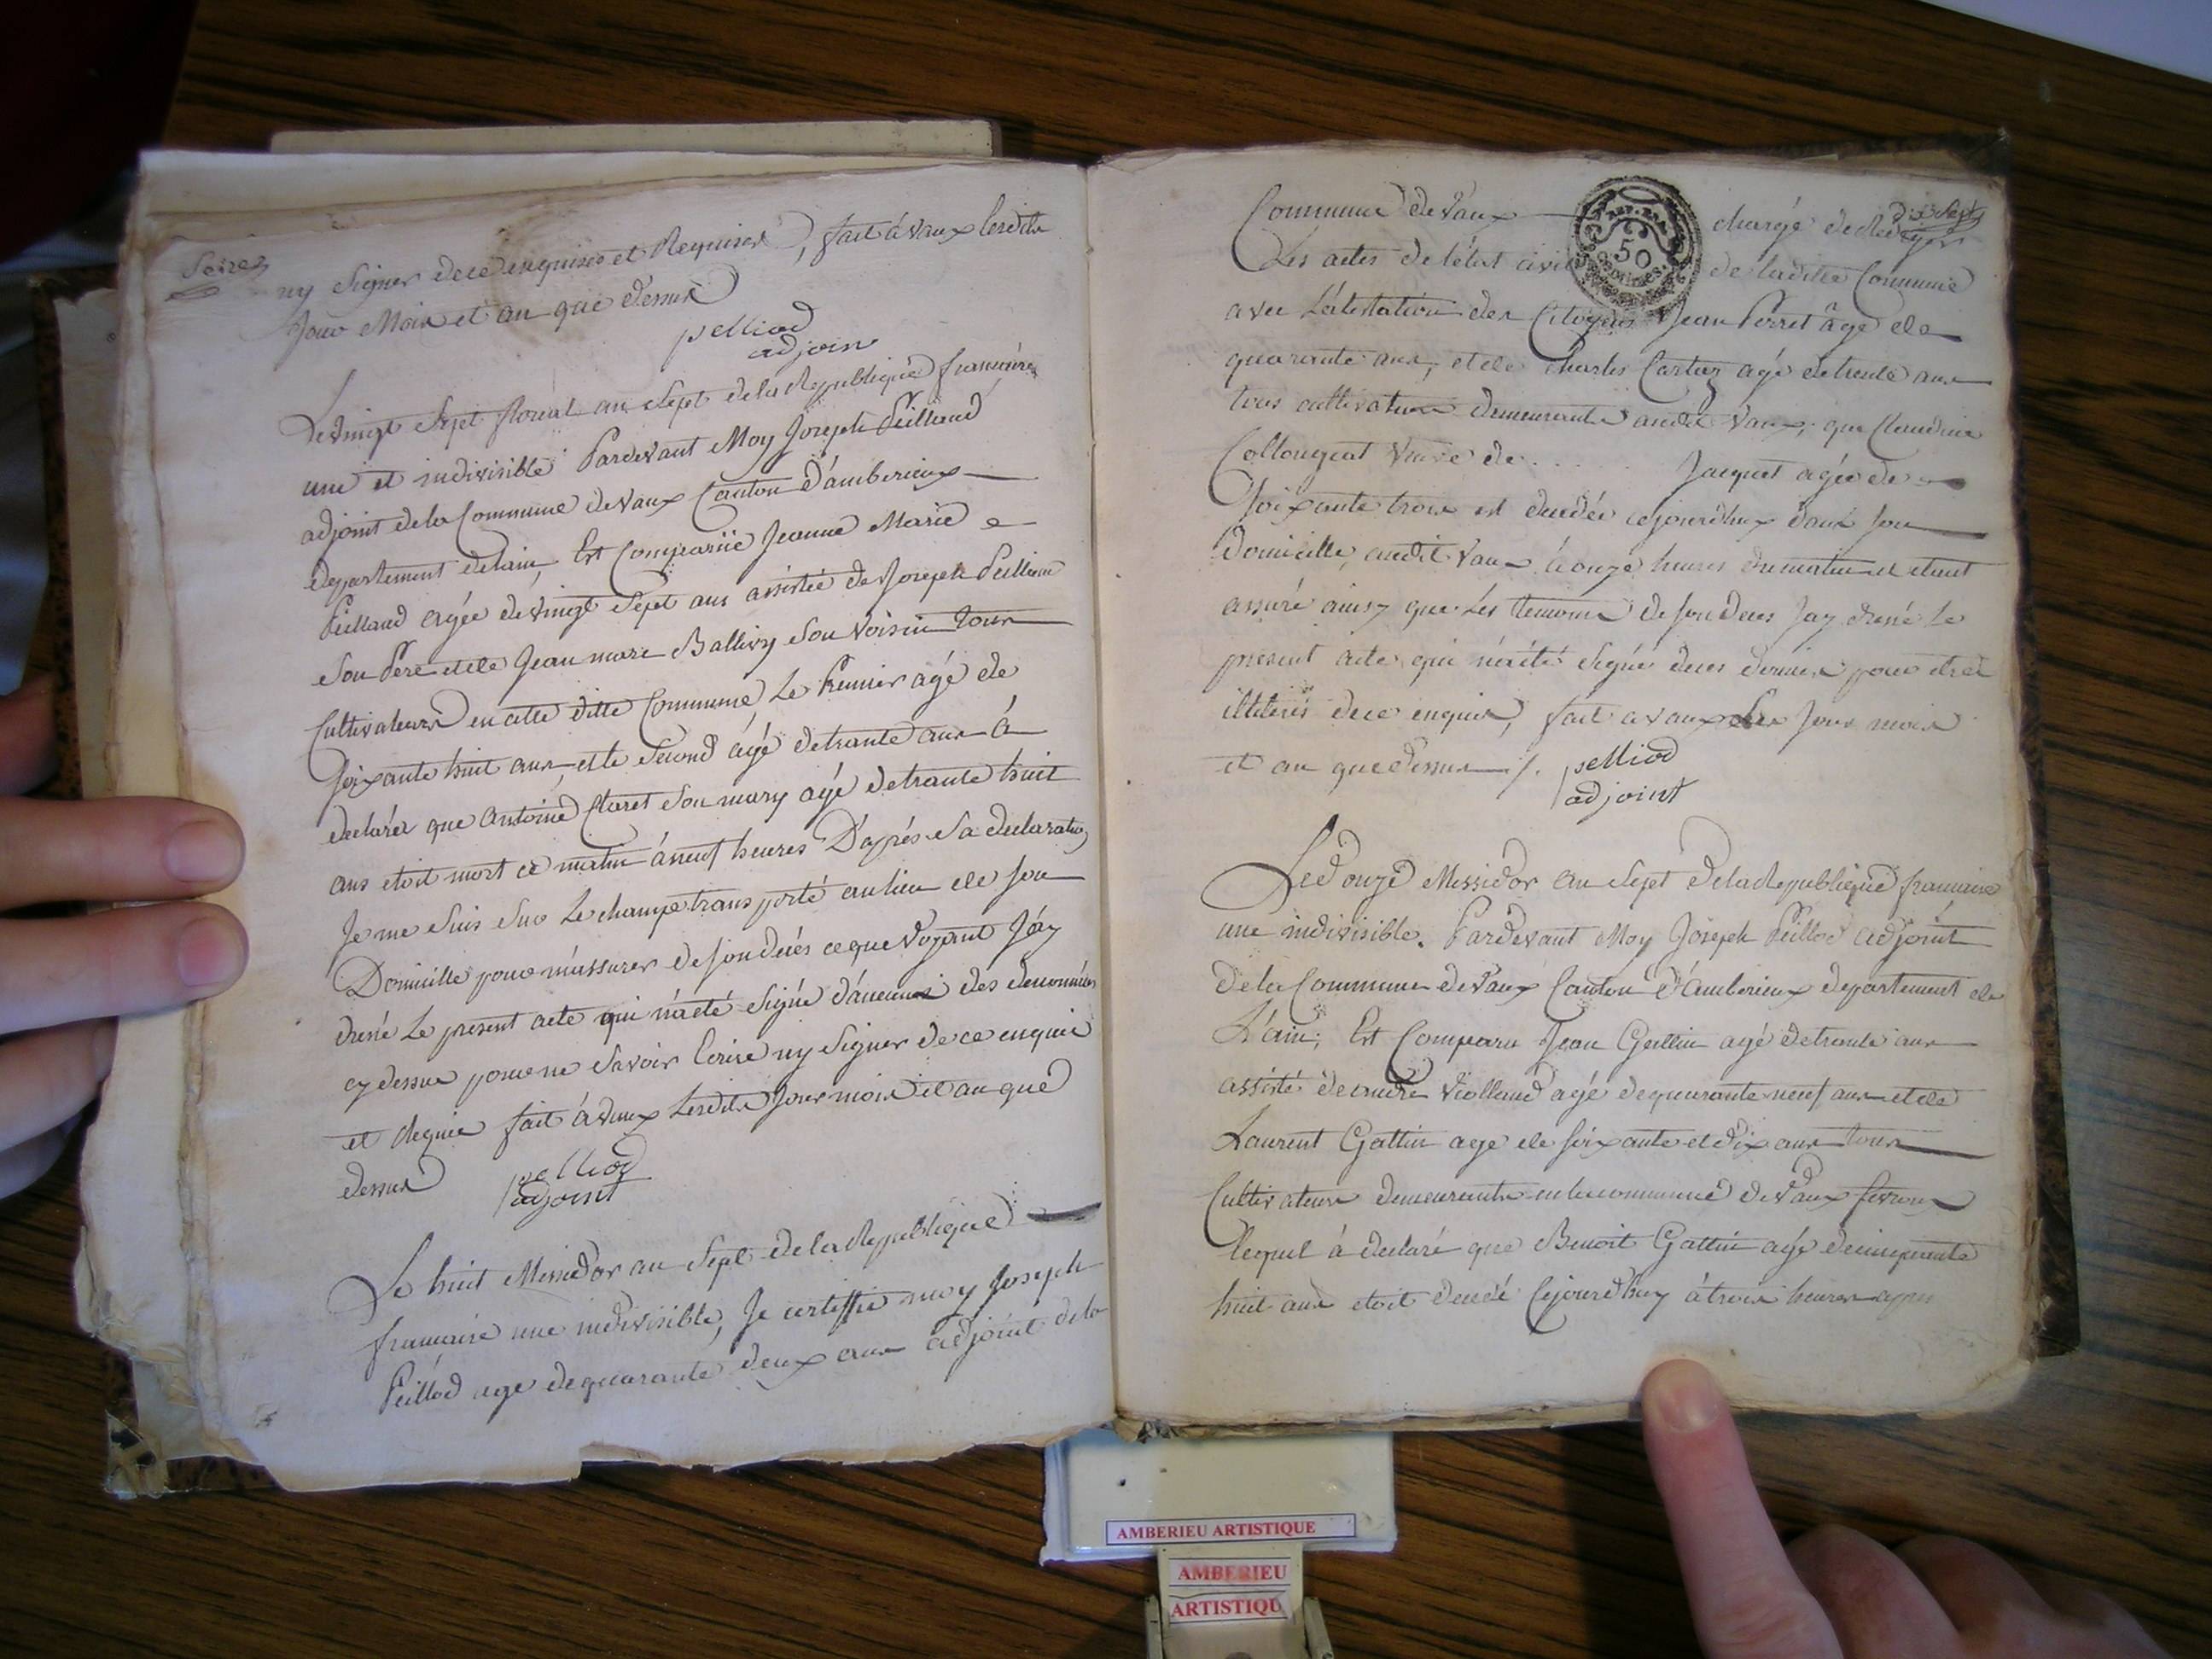 Seize
ny Signer de ce enquis et Requiser, fait à Vaux lesdits
Jour Mois et an que dessus
pelliod
adjoin
Le vingt Sept floreal an Sept de la Republique francaise
une et indivisible Pardevant Moy Joseph Peilliaud
adjoint de la Commune de Vaux Canton d'amberieux
departement delain, Est Comparüe Jeanne Marie
Peillaud agée de vingt Sept ans assistée de Joseph Peilliaud
Son Pere et de Jean marc Ballivy Son Voisin tous
Cultivateurs en cette ditte Commune Le Premier agé de
Soixante huit ans, et le Second agé de trante ans à
declarée que Antoine Claret Son mary agé de trante huit
ans etoit mort ce matin à neuf heures D'après Sa declaration
Je me Suis Sur Le champ transporté au lieu de Son
Domicille pour m'assurer de Son deces ce que Voyant J'ay
dressé Le present acte qui n'a été Signé d'aucuns des denommés
cy dessus pour ne Savoir Ecrire ny Signer de ce enquis
et Requis fait à Vaux Lesdits Jour mois et an que
dessus
pelliod
adjoint
Le huit Messidor an Sept de la Republique
francaise une indivisible, Je certiffie moy Joseph
Peillod age de quarante deux ans adjoint de la
dix Sept
Commune de Vaux chargé de Rediger
REP. FRA.
50
Les actes de létat civil de ladite Commune
avec L'atestation des Citoyens Jean Perret âgé de
quarante ans, et de Charles Cartier agé de trente ans
tous cultivateurs demeurants audit Vaux, que Claudine
Collougeat Veuve de . . . . Jacquet agée de
Soixante trois est decedée cejourdhuy dans Son
Domicille, audit Vaux à onze heures du matin et etant
assuré ainsy que Les temoins de Son deces Jay dressé Le
present acte qui n'a été Signé de ces derniers pour etre
illiterés de ce enquis, fait a Vaux Les Jour mois
et an que dessus ./. pelliod
adjoint
Le Douze Messidor an Sept de la Republique francaise
une indivisible. Pardevant Moy Joseph Peillod adjoint
de la Commune de Vaux Canton d'Amberieux departement de
L'ain; Est Comparu Jean Gattin agé de trante ans
assisté de andre Viollaud agé de quarante neuf ans et de
Laurent Gattin age de Soixante et dix ans tous
Cultivateurs demeurants en la commune de Vaux
lequel à declaré que Benoit Gattin age de cinquante
huit ans etoit decedé Cejourdhuy à trois heures apres
AMBERIEU ARTISTIQUE
AMBERIEU
ARTISTIQU